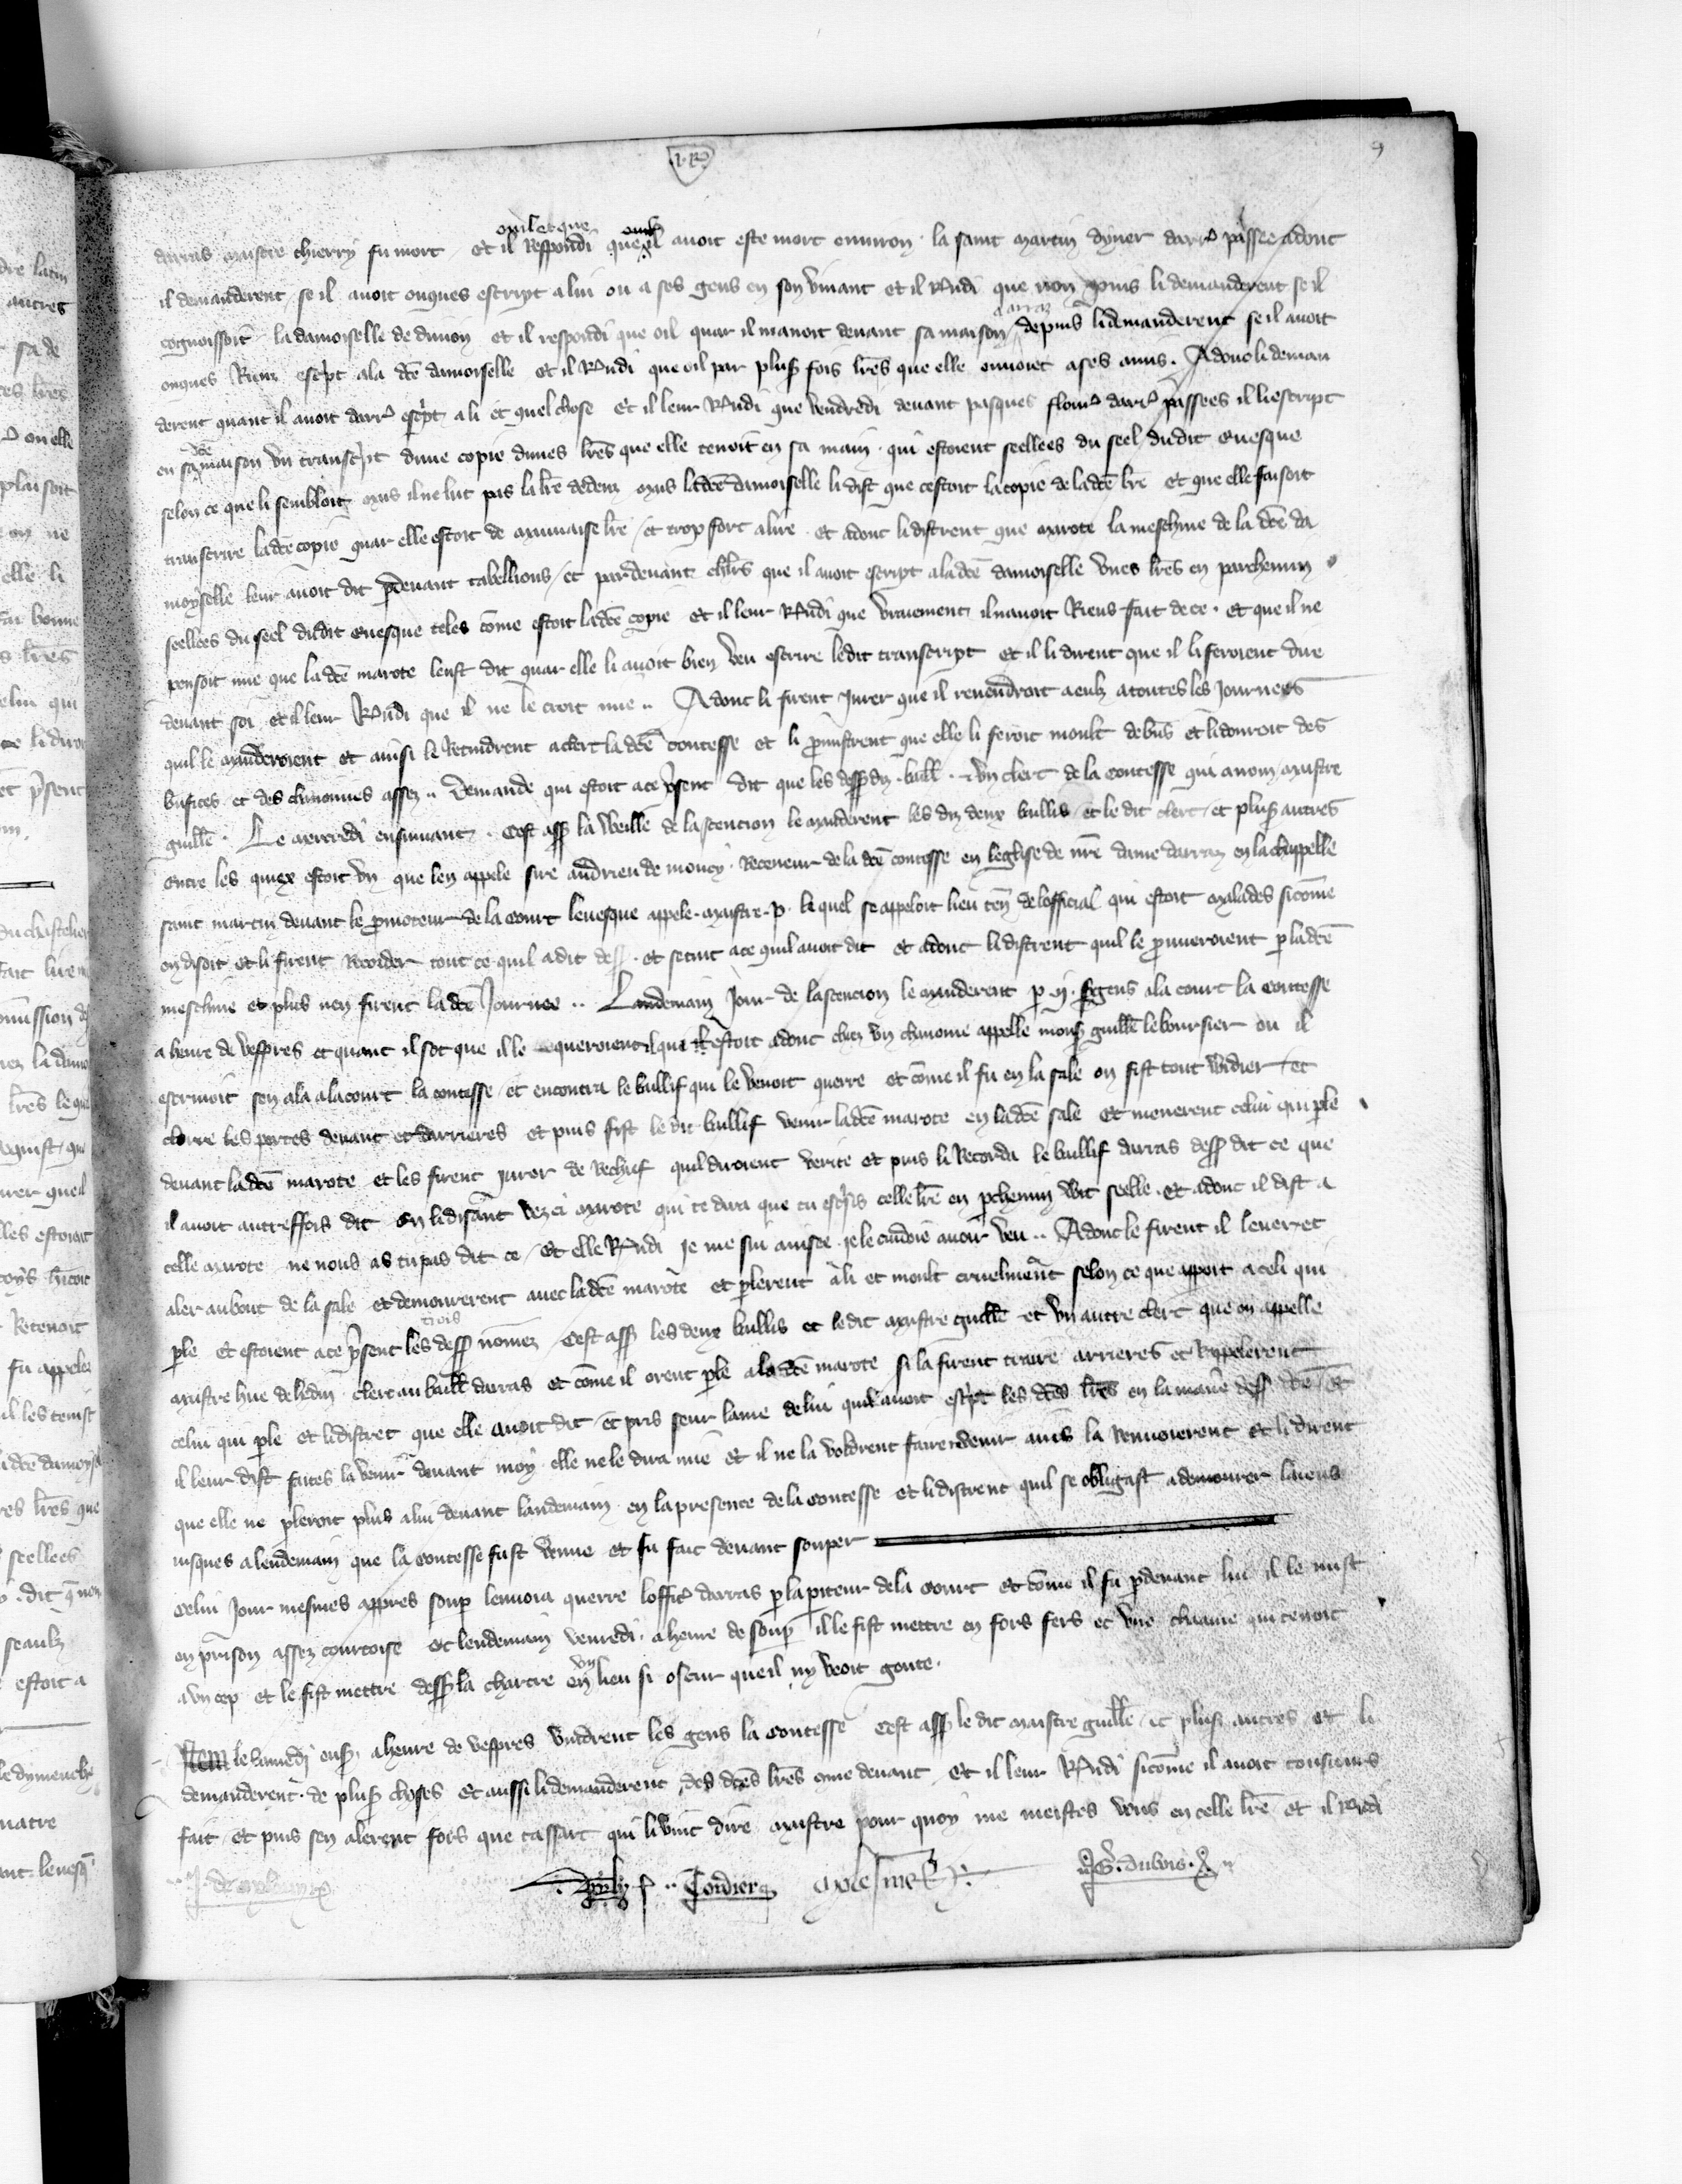 darras maistre thierry fu mort et il Respondi oil et que quil avoit este mort environ la saint martin dyver darr̄ passee adont
il demanderent se il avoit onques escript a lui ou a ses gens en son vivant et il Rndi que non puis li demanderent se il
cognoissoit la damoiselle de divion et il respondi que oil quar il manoit devant sa maison a arraz depuis li demanderent se il avoit
onques Riens escrpt a la dcē damoiselle et il Rndi que oil par plus' fois lr̄es que elle envoiet a ses amis. Adonc li deman
derent quant il avoit darr̄ escrpt a li et quel chose et il leur Rndi que vendredi devant pasques flour̄ darr̄ passees il li escript
en sa dcē maison un transcrpt dune copie dunes lr̄es que elle tenoit en sa main qui estoient seellees du seel dudit evesque
selon ce que li sembloit mes il ne lut pas la lr̄e dedenz mes la dcē damoiselle li dist que cestoit la copie de la dcē lr̄e et que elle faisoit
transcrire la dcē copie quar elle estoit de mauvaise lr̄e et trop fort a lire et adonc li distrent que marote la meschine de la dcē da
moyselle leur avoit dit p devant tabellions et par devant chlr̄s que il avoit escript a la dcē damoiselle unes lr̄es en parchemin
seellees du seel dudit evesque teles cōme estoit la dcē copie et il leur Rndi que vraiement il navoit Riens fait de ce. et que il ne
pensoit mie que la dcē marote leust dit quar elle li avoit bien veu escrire ledit transcript et il li dirent que il li feroient dire
devant soi et il leur Rndi que il ne le croit mie .. Adonc li firent Jurer que il revendroit a eulz a toutes les Journees
quil le manderoient et ainsi le Retindrent a clerc la dcē contesse et li promistrent que elle li feroit moult de bn̄s et li donroit des
bnfices et des chanonnies assez .. Demande qui estoit a ce psent dit que les dess' diz .ij. baill'. et un clerc de la contesse qui a nom maistre
guillē. Le mercredi ensuivant. Cest ass' la veille de lascencion le manderent les diz deux baillis et le dit clerc et plus' autres
entre les quiex estoit un que len appele sire andrieu de moncy. Receveur de la dcē contesse en leglise de nr̄e dame darraz en la chappelle
saint martin devant le promoteur de la court levesque appele maistre .p. le quel se appeloit lieu ten̄ de lofficial qui estoit malades sicōme
on disoit et li firent Recorder tout ce quil a dit dess'. et se tint a ce quil avoit dit et adonc li distrent quil le prouveroient p la dcē
meschine et plus nen firent la dcē Journee .. Landemain Jour de lascencion le manderent p .ij. sergens a la court la contesse
a heure de vespres et quant il sot que il le queroient il qui estoit adonc chez un chanoine appelle mons' guillē le boursier ou il
escrivoit sen ala a la court la contesse et encontra le baillif qui le venoit querre et cōme il fu en la sale on fist tout widier et
clorre les portes devant et darrieres et puis fist le dit baillif venir la dcē marote en la dcē sale et menerent celui qui ple
devant la dcē marote et les firent jurer de Rechief quil diroient verite et puis li Recorda le baillif darras dess' dit ce que
il avoit autreffois dit en li disant vez ci marote qui te dira que tu escrsis celle lr̄e en pchemin seelle. et adonc il dist a
celle marote ne nous as tu pas dit ce et elle Rndi je me sui avisee je le cuidoie avoir veu .. Adonc le firent il lever et
aler au bout de la sale et demourerent avec la dcē marote et plerent a li et moult cruelment selon ce que apparoit a celi qui
ple et estoient a ce psent les trois dess' nōmez cest ass' les deux baillis et le dit maistre guillē et un autre clerc que on appelle
maistre hue de hedin clerc au baill' darras et cōme il orent ple a la dcē marote si la firent traire arrieres et Rappelerent
celui qui ple et li distret que elle avoit dit et pris seur lame de lui quil avoit escrpt les dcēs lr̄es en la manie dess' dcē et
il leur dist faites la venir devant moy. elle ne le dira mie et il ne la voldrent faire venir mes la renvoierent et li dirent
que elle ne pleroit plus a lui devant landemain en la presence de la contesse et li distrent quil se obligast a demourer laiens
jusques a lendemain que la contesse fust venue et fu fait devant souper
Celui Jour mesmes appres soup lenvoia querre loffic' darras p lapariteur de la court et cōme il fu pdevant lui il le mist
en prison assez courtoise et lendemain venredi a heure de soup il le fist mettre en fors fers et une chaaine qui tenoit
a un cep et le fist mettre dess' la chartre en un lieu si oscur que il ny veoit goute.
Item le samedi ens' a heure de vespres vindrent les gens la contesse cest ass' le dit maistre guillē et plus' autres et li
demanderent de plus' choses et aussi li demanderent des dcēs lr̄es cōme devant et il leur Rndi sicōme il avoit tousjours
fait et puis sen alerent fors que tassart qui li vint dire maistre pour quoy me meistes vous en celle lr̄e et il rendi
Cordier
G. dubois